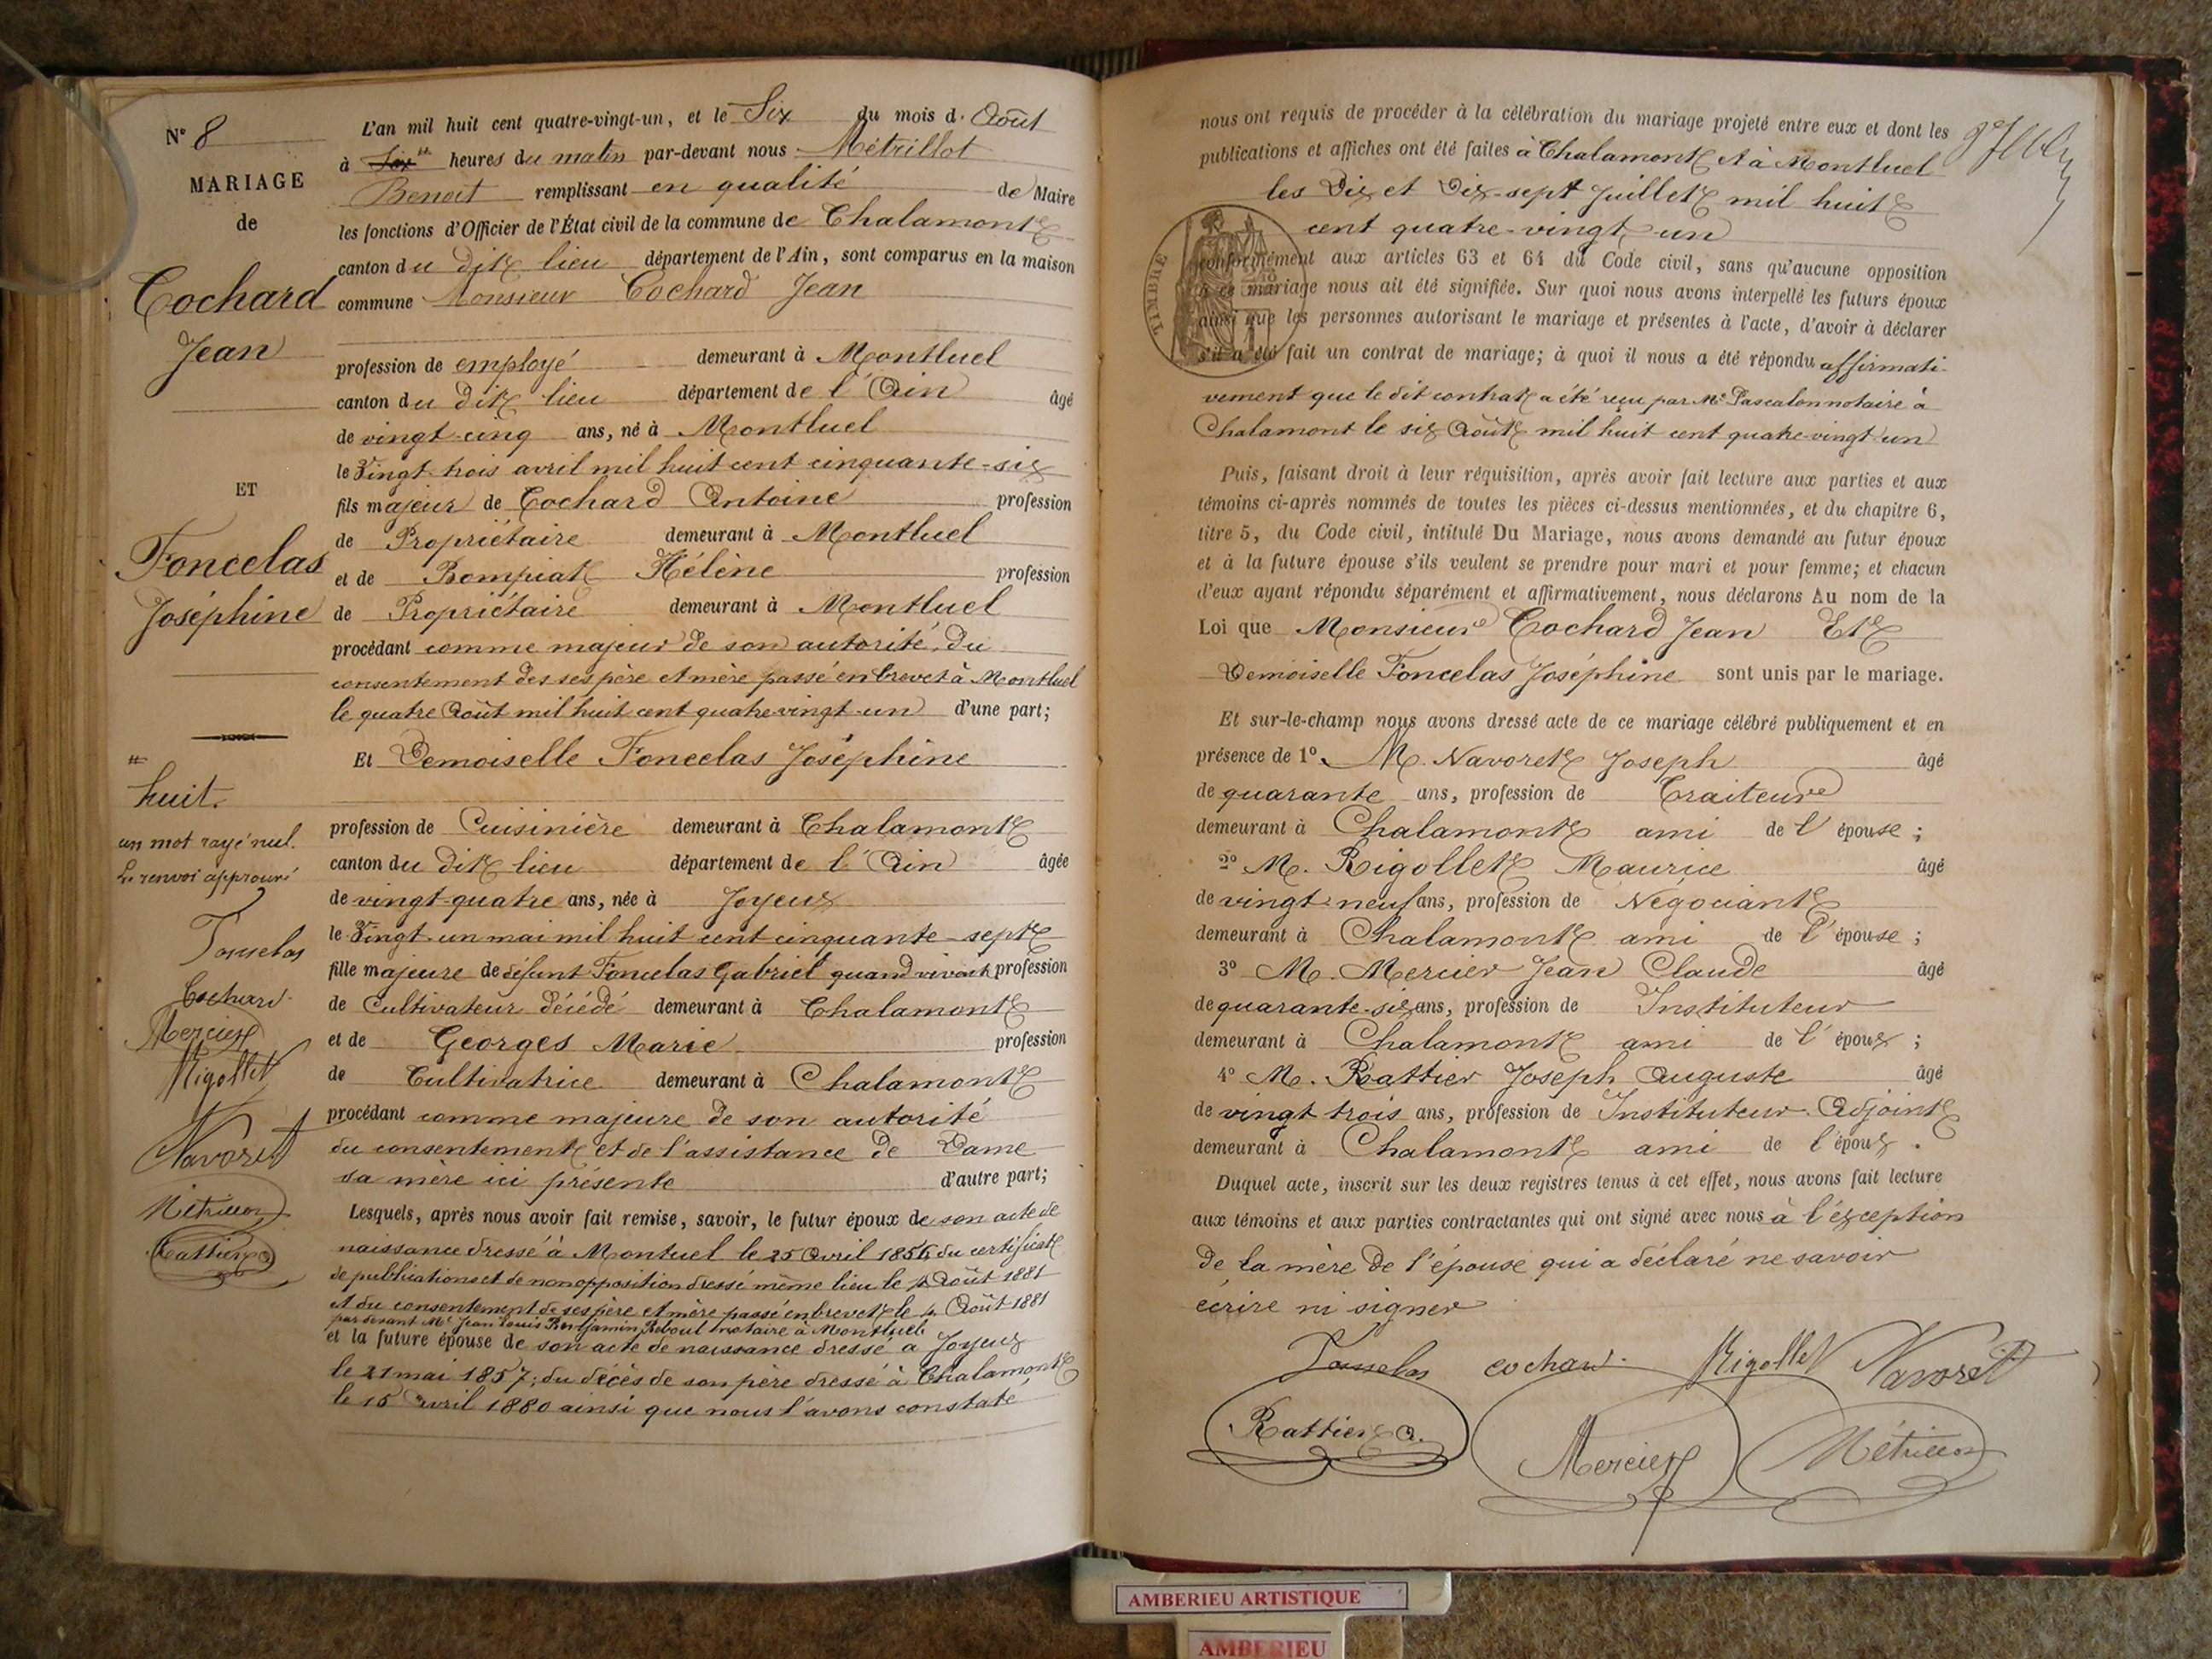 N° 8
MARIAGE
de
Cochard
Jean
ET
Foncelas
Joséphine
#
huit.
un mot rayé nul.
Le renvoi approuvé
Fonselas
Cochard
Mercier
Rigollet
Navoret
Métrillot
Rattier A
L'an mil huit cent quatre-vingt-un, et le Six du mois d. Août
à Six # heures du matin par-devant nous Métrillot
Benoit remplissant en qualité de Maire
les fonctions d'Officier de l'État civil de la commune de Chalamont
canton du dit lieu département de l'Ain, sont comparus en la maison
commune Monsieur Cochard Jean
profession de employé demeurant à Montluel
canton du dit lieu département de l'Ain âgé
de vingt-cinq ans, né à Montluel
le Vingt-trois avril mil huit cent cinquante-six
fils majeur de Cochard Antoine profession
de Propriétaire demeurant à Montluel
et de Bompiat Hélène profession
de Propriétaire demeurant à Montluel
procédant comme majeur de son autorité, du
consentement des ses père et mère passé en brevet à Montluel
le quatre Août mil huit cent quatre vingt-un d'une part;
Et Demoiselle Foncelas Joséphine
profession de Cuisinière demeurant à Chalamont
canton du dit lieu département de l'Ain âgée
de vingt-quatre ans, née à Joyeux
le Vingt-un mai mil huit cent cinquante-sept
fille majeure de défunt Foncelas Gabriel quand vivait profession
de Cultivateur décédé demeurant à Chalamont
et de Georges Marie profession
de Cultivatrice demeurant à Chalamont
procédant comme majeure de son autorité
du consentement et de l'assistance de Dame
sa mère ici présente d'autre part;
Lesquels, après nous avoir fait remise, savoir, le futur époux de son acte de
naissance dressé à Montuel le 25 Avril 1856, du certificat
de publications et de non opposition dressé même lieu le 4 Août 1881
et du consentement de ses père et mère passé en brevet le 4 Août 1881
par devant Me Jean Louis Benjamin Reboul notaire à Montluel
et la future épouse de son acte de naissance dressé à Joyeux
le 21 mai 1857; du décès de son père dressé à Chalamont
le 15 avril 1880 ainsi que nous l'avons constaté
nous ont requis de procéder à la célébration du mariage projeté entre eux et dont les
publications et affiches ont été faites à Chalamont et à Montluel
les Dix et Dix-sept Juillet mil huit
cent quatre-vingt-un
TIMBRE
conformément aux articles 63 et 64 du Code civil, sans qu'aucune opposition
à ce mariage nous ait été signifiée. Sur quoi nous avons interpellé les futurs époux
ainsi que les personnes autorisant le mariage et présentes à l'acte, d'avoir à déclarer
s'il a été fait un contrat de mariage; à quoi il nous a été répondu affirmati-
vement que le dit contrat a été reçu par Me Pascalon notaire à
Chalamont le six Août mil huit cent quatre-vingt un
Puis, faisant droit à leur réquisition, après avoir fait lecture aux parties et aux
témoins ci-après nommés de toutes les pièces ci-dessus mentionnées, et du chapitre 6,
titre 5, du Code civil, intitulé Du Mariage, nous avons demandé au futur époux
et à la future épouse s'ils veulent se prendre pour mari et pour femme; et chacun
d'eux ayant répondu séparément et affirmativement, nous déclarons Au nom de la
Loi que Monsieur Cochard Jean Et
Demoiselle Foncelas Joséphine sont unis par le mariage.
Et sur-le-champ nous avons dressé acte de ce mariage célébré publiquement et en
présence de 1° M. Navoret Joseph âgé
de quarante ans, profession de Traiteur
demeurant à Chalamont ami de l'épouse;
2° M. Rigollet Maurice âgé
de vingt-neuf ans, profession de Négociant
demeurant à Chalamont ami de l'épouse;
3° M. Mercier Jean Claude âgé
de quarante-six ans, profession de Instituteur
demeurant à Chalamont ami de l'époux;
4° M. Rattier Joseph Auguste âgé
de vingt trois ans, profession de Instituteur-Adjoint
demeurant à Chalamont ami de l'époux.
Duquel acte, inscrit sur les deux registres tenus à cet effet, nous avons fait lecture
aux témoins et aux parties contractantes qui ont signé avec nous à l'éxception
de la mère de l'épouse qui a déclaré ne savoir
écrire ni signer
Fonselas cochard Rigollet Navoret
Rattier A. Mercier Métrillot
AMBERIEU ARTISTIQUE
AMBERIEU